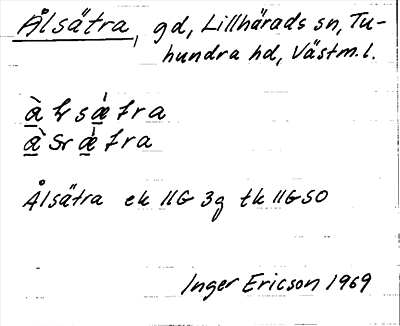 Ålsätra, gd, Lillhärads sn, Tu-
hundra hd, Västm.l.
Ålsätra ek 11G 3g tk 11G SO
Inger Ericson 1969